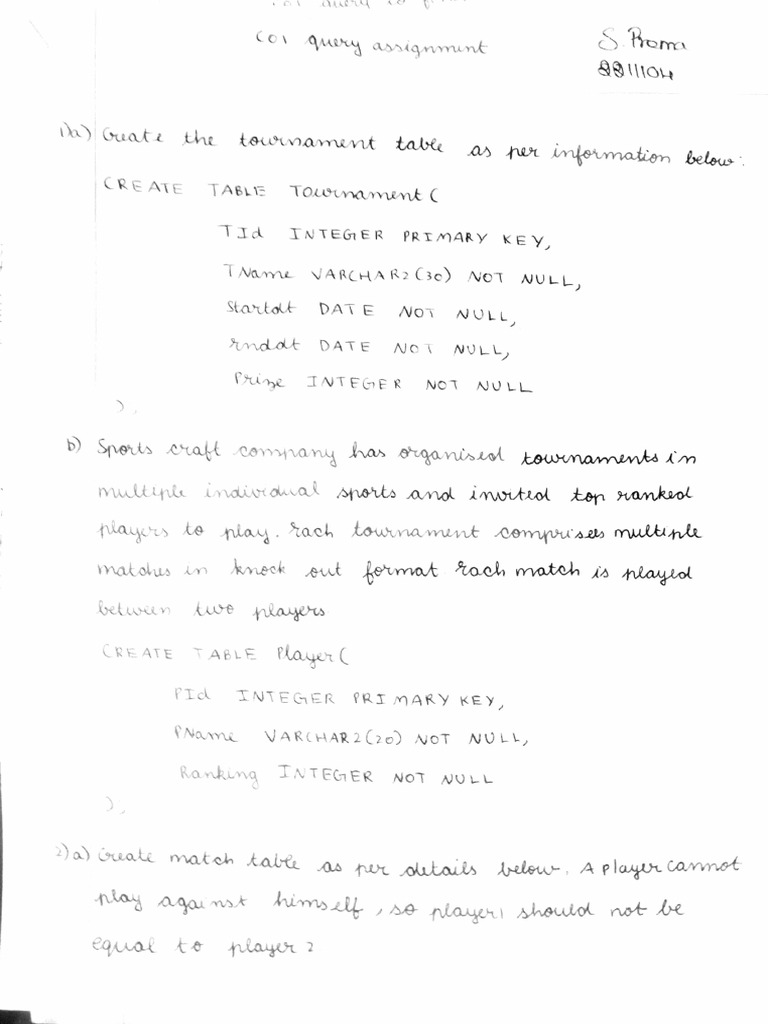 CO1 query assignment
S. Prema
2211104
1)a) Create the tournament table as per information below:
CREATE TABLE Tournament (
TId INTEGER PRIMARY KEY,
TName VARCHAR2(30) NOT NULL,
Startdt DATE NOT NULL,
Enddt DATE NOT NULL,
Prize INTEGER NOT NULL
);
b) Sports craft company has organised tournaments in
multiple individual sports and invited top ranked
players to play. Each tournament comprises multiple
matches in knock out format Each match is played
between two players
CREATE TABLE Player (
PId INTEGER PRIMARY KEY,
PName VARCHAR2(20) NOT NULL,
Ranking INTEGER NOT NULL
);
2)a) Create match table as per details below. A player cannot
play against himself, so player1 should not be
equal to player 2